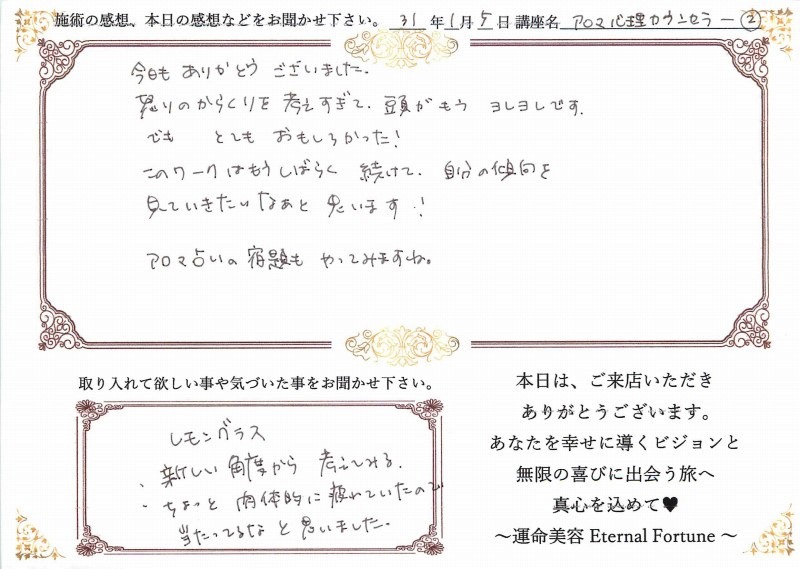 施術の感想、本日の感想などをお聞かせ下さい。 31年1月5日 講座名 アロマ心理カウンセラー②
今日も ありがとう ございました.
怒りのからくりを 考えすぎて、頭がもう ヨレヨレです.
でも とても おもしろかった!
このワークはもうしばらく 続けて、自分の傾向を
見ていきたいなぁと 思います!
アロマ占いの 宿題も やってみますね。
取り入れて欲しい事や気づいた事をお聞かせ下さい。
レモングラス
・新しい 角度から 考えてみる.
・ちょっと 肉体的に 疲れていたので
当たってるな と 思いました.
本日は、ご来店いただき
ありがとうございます。
あなたを幸せに導くビジョンと
無限の喜びに出会う旅へ
真心を込めて♥
〜運命美容 Eternal Fortune 〜